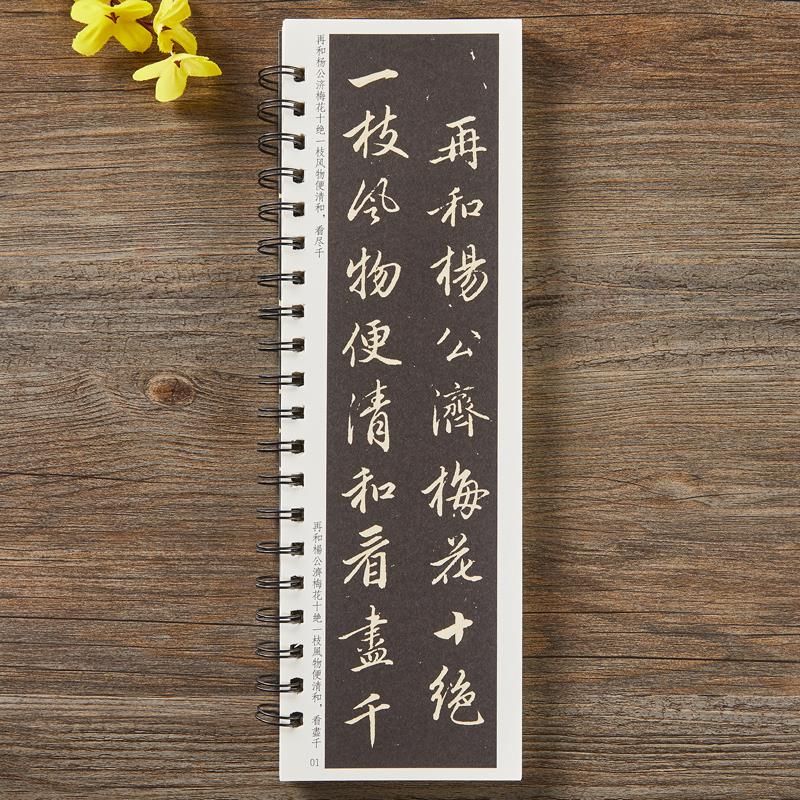 再和楊公濟梅花十绝
一枝風物便清和看盡千
再和杨公济梅花十绝一枝风物便清和，看尽千
再和楊公濟梅花十绝一枝風物便清和，看盡千
01